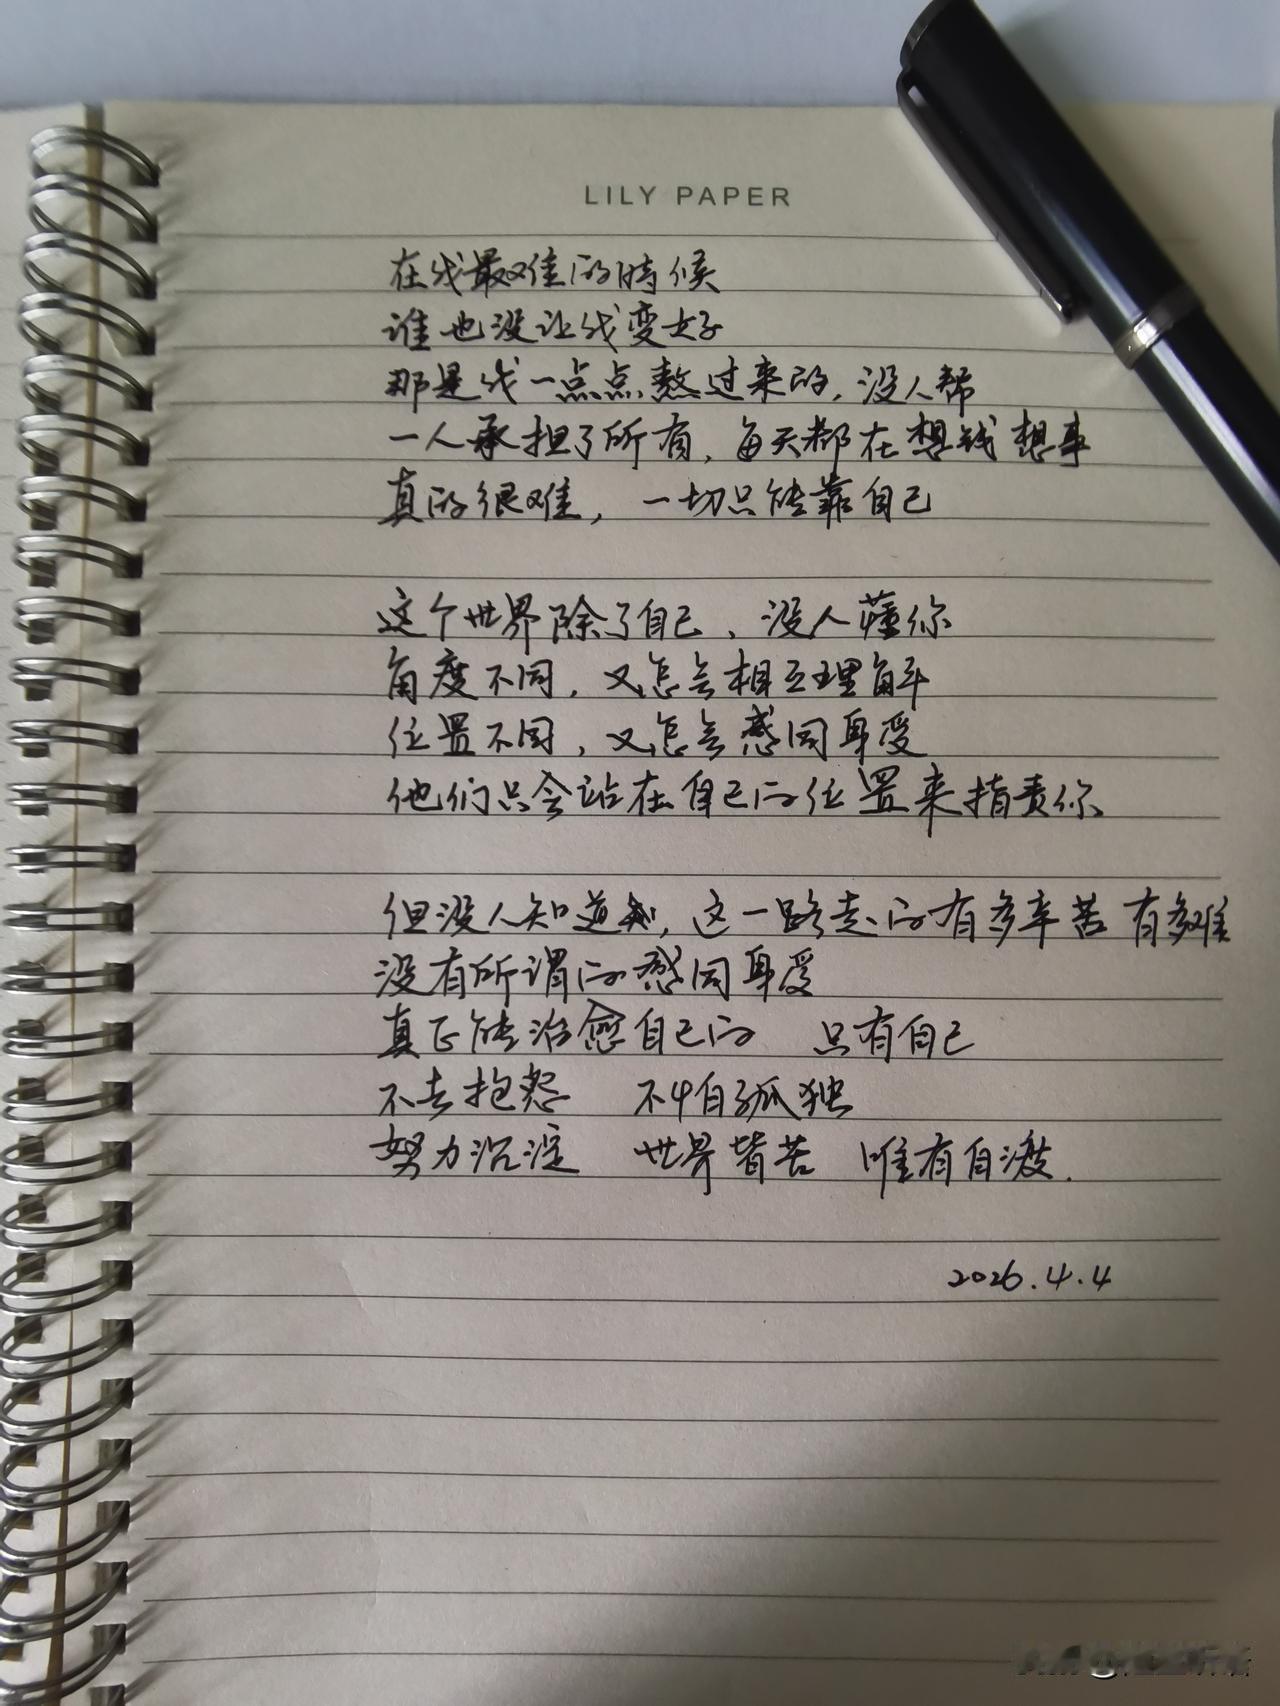 LILY PAPER
在我最难的时候
谁也没让我变好
那是我一点点熬过来的,没人帮
一人承担了所有,每天都在想钱想事
真的很难,一切只能靠自己
这个世界除了自己、没人懂你
角度不同,又怎会相互理解
位置不同,又怎会感同身受
他们只会站在自己的位置来指责你
但没人知道,这一路走的有多辛苦有多难
没有所谓的感同身受
真正能治愈自己的 只有自己
不去抱怨 不怕孤独
努力沉淀 世界皆苦 唯有自渡.
2026.4.4